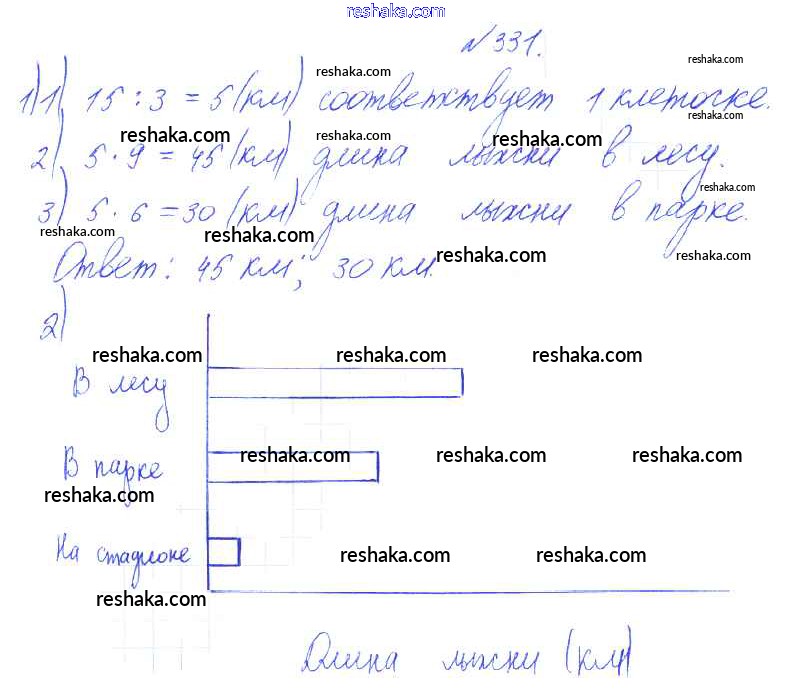 reshaka.com
№ 331.
reshaka.com
reshaka.com
1) 1) 15 : 3 = 5 (км) соответствует 1 клеточке.
reshaka.com reshaka.com reshaka.com
2) 5 · 9 = 45 (км) длина лыжни в лесу.
reshaka.com
3) 5 · 6 = 30 (км) длина лыжни в парке.
reshaka.com reshaka.com
Ответ: 45 км; 30 км.
reshaka.com reshaka.com
2)
reshaka.com reshaka.com reshaka.com
В лесу
В парке
reshaka.com reshaka.com reshaka.com
reshaka.com
На стадионе
reshaka.com reshaka.com
reshaka.com
Длина лыжни (км)